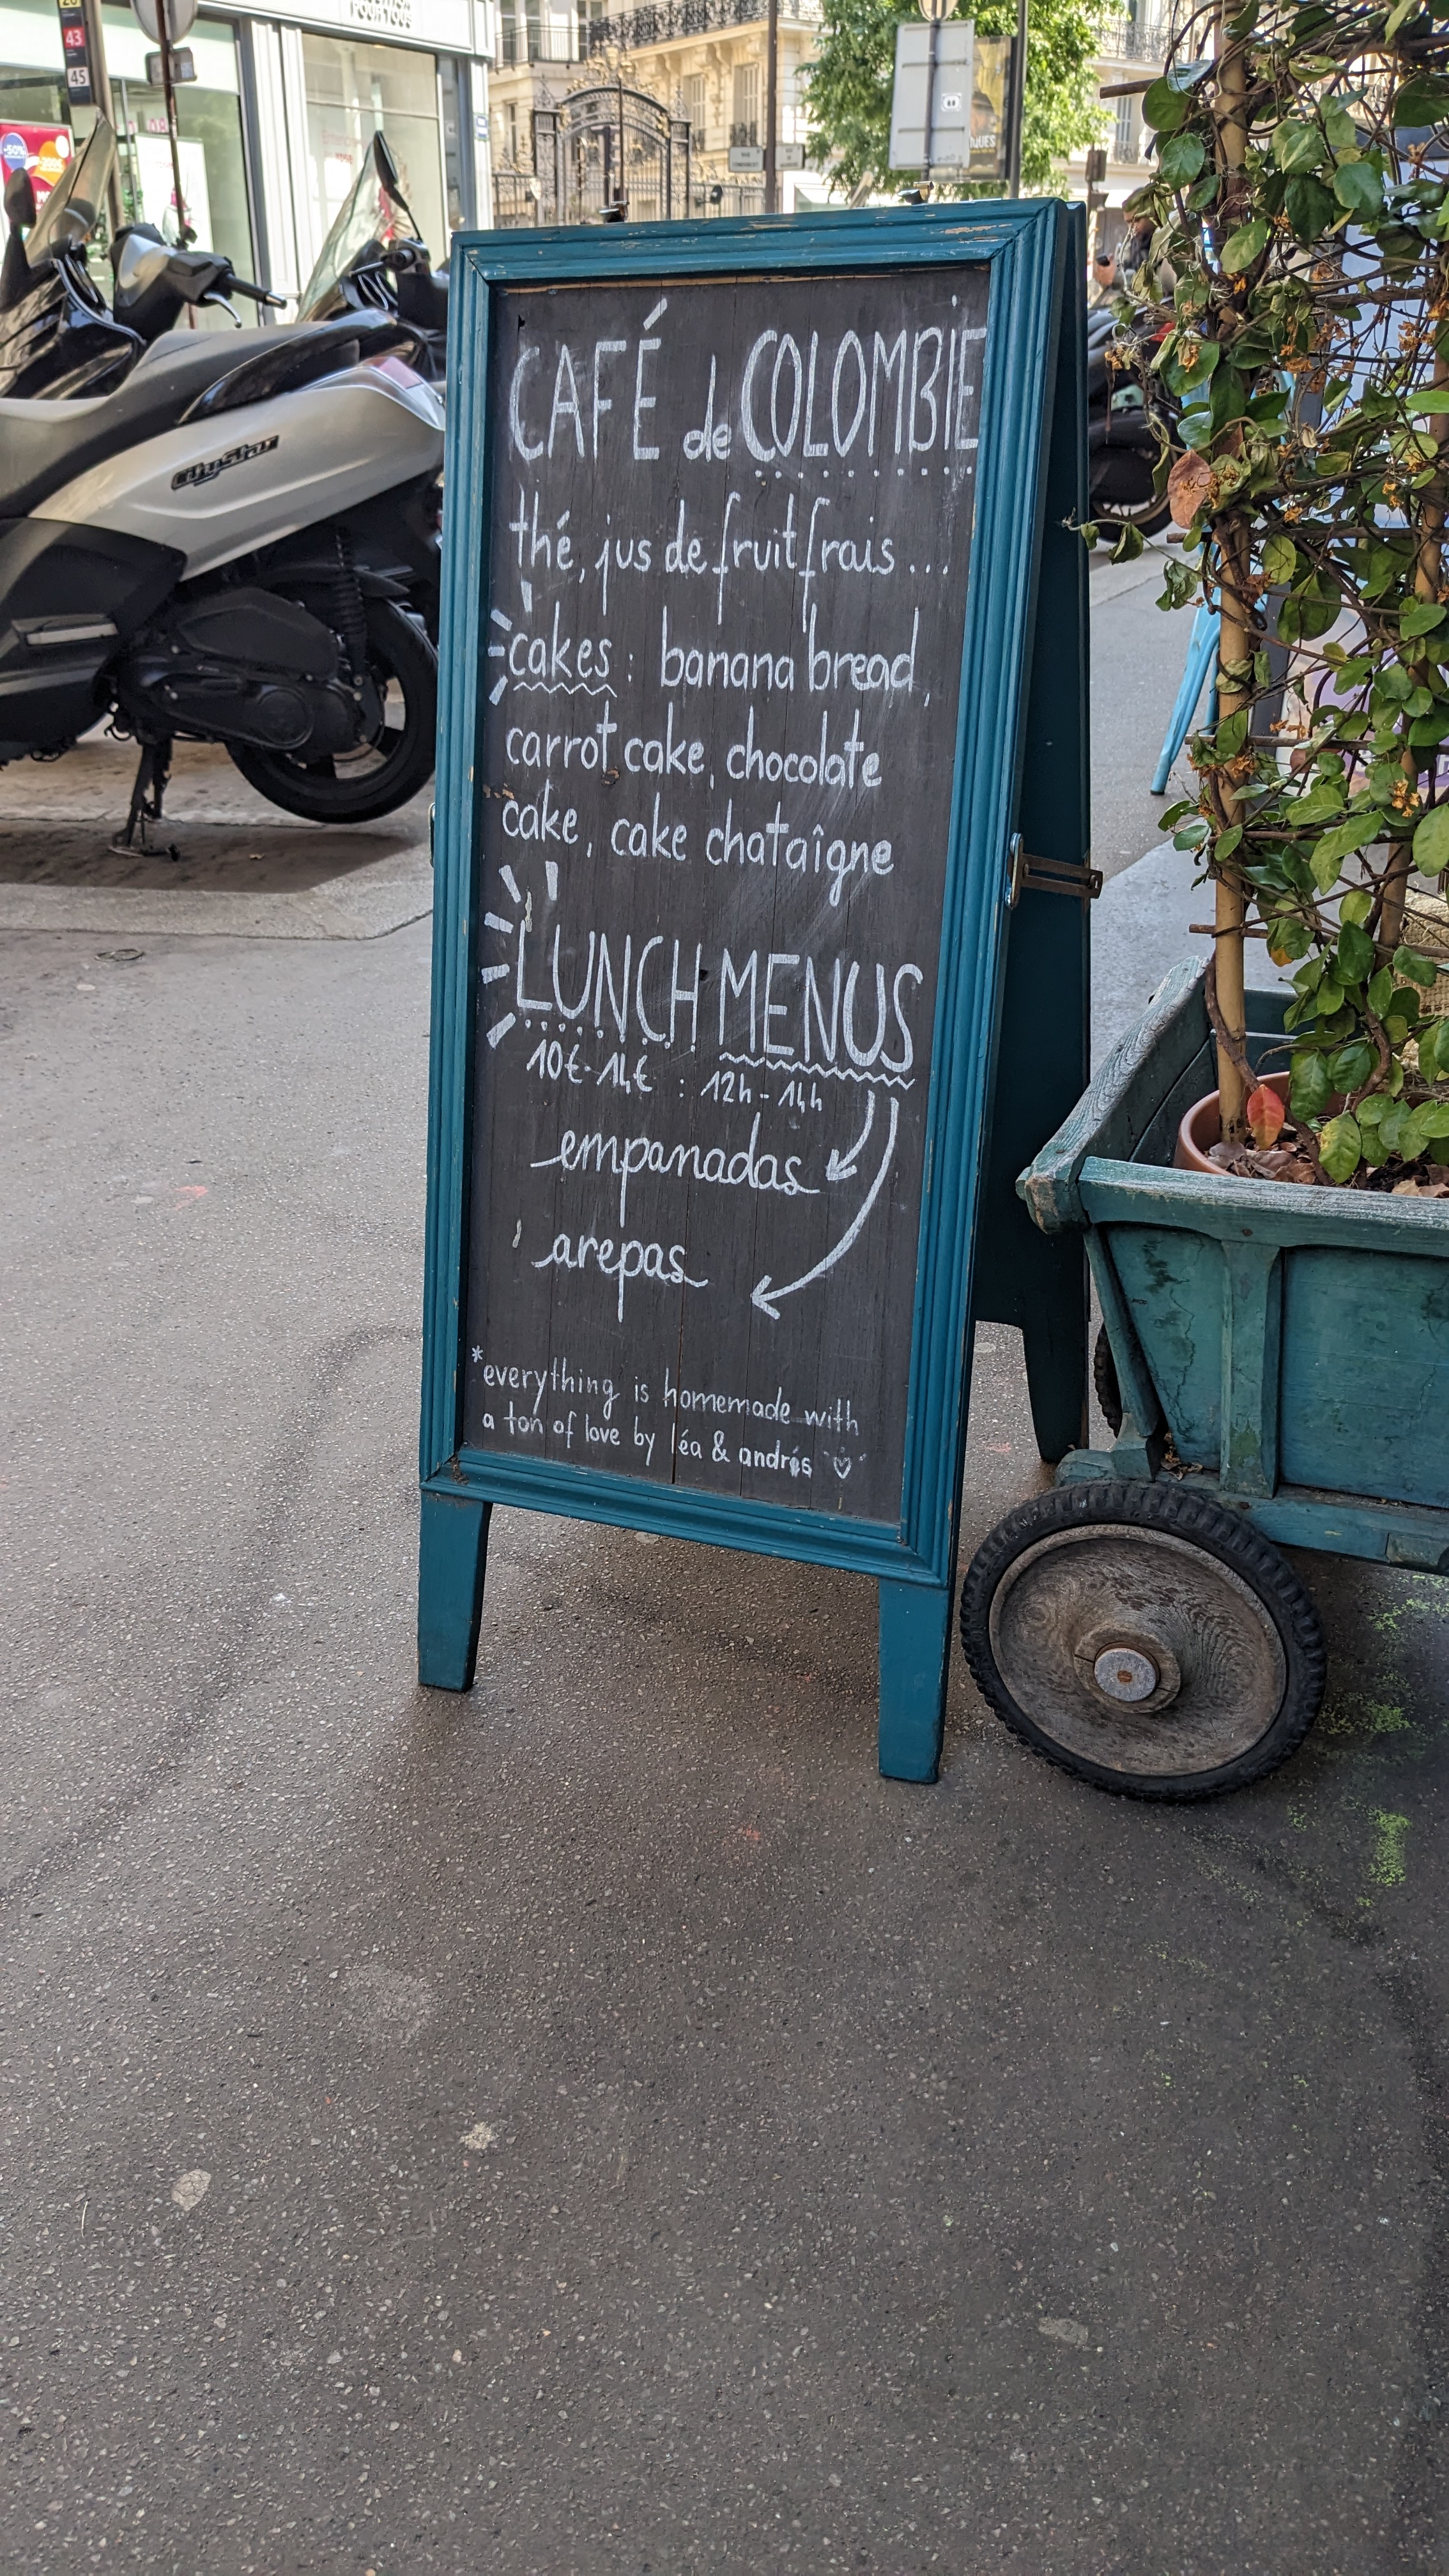 43
45
-50%
POUR TOUS
citystar
CAFÉ de COLOMBIE
thé, jus de fruit frais...
cakes : banana bread,
carrot cake, chocolate
cake, cake chataîgne
LUNCH MENUS
10€-14€ : 12h-14h
empanadas
arepas
*everything is homemade with
a ton of love by léa & andrés